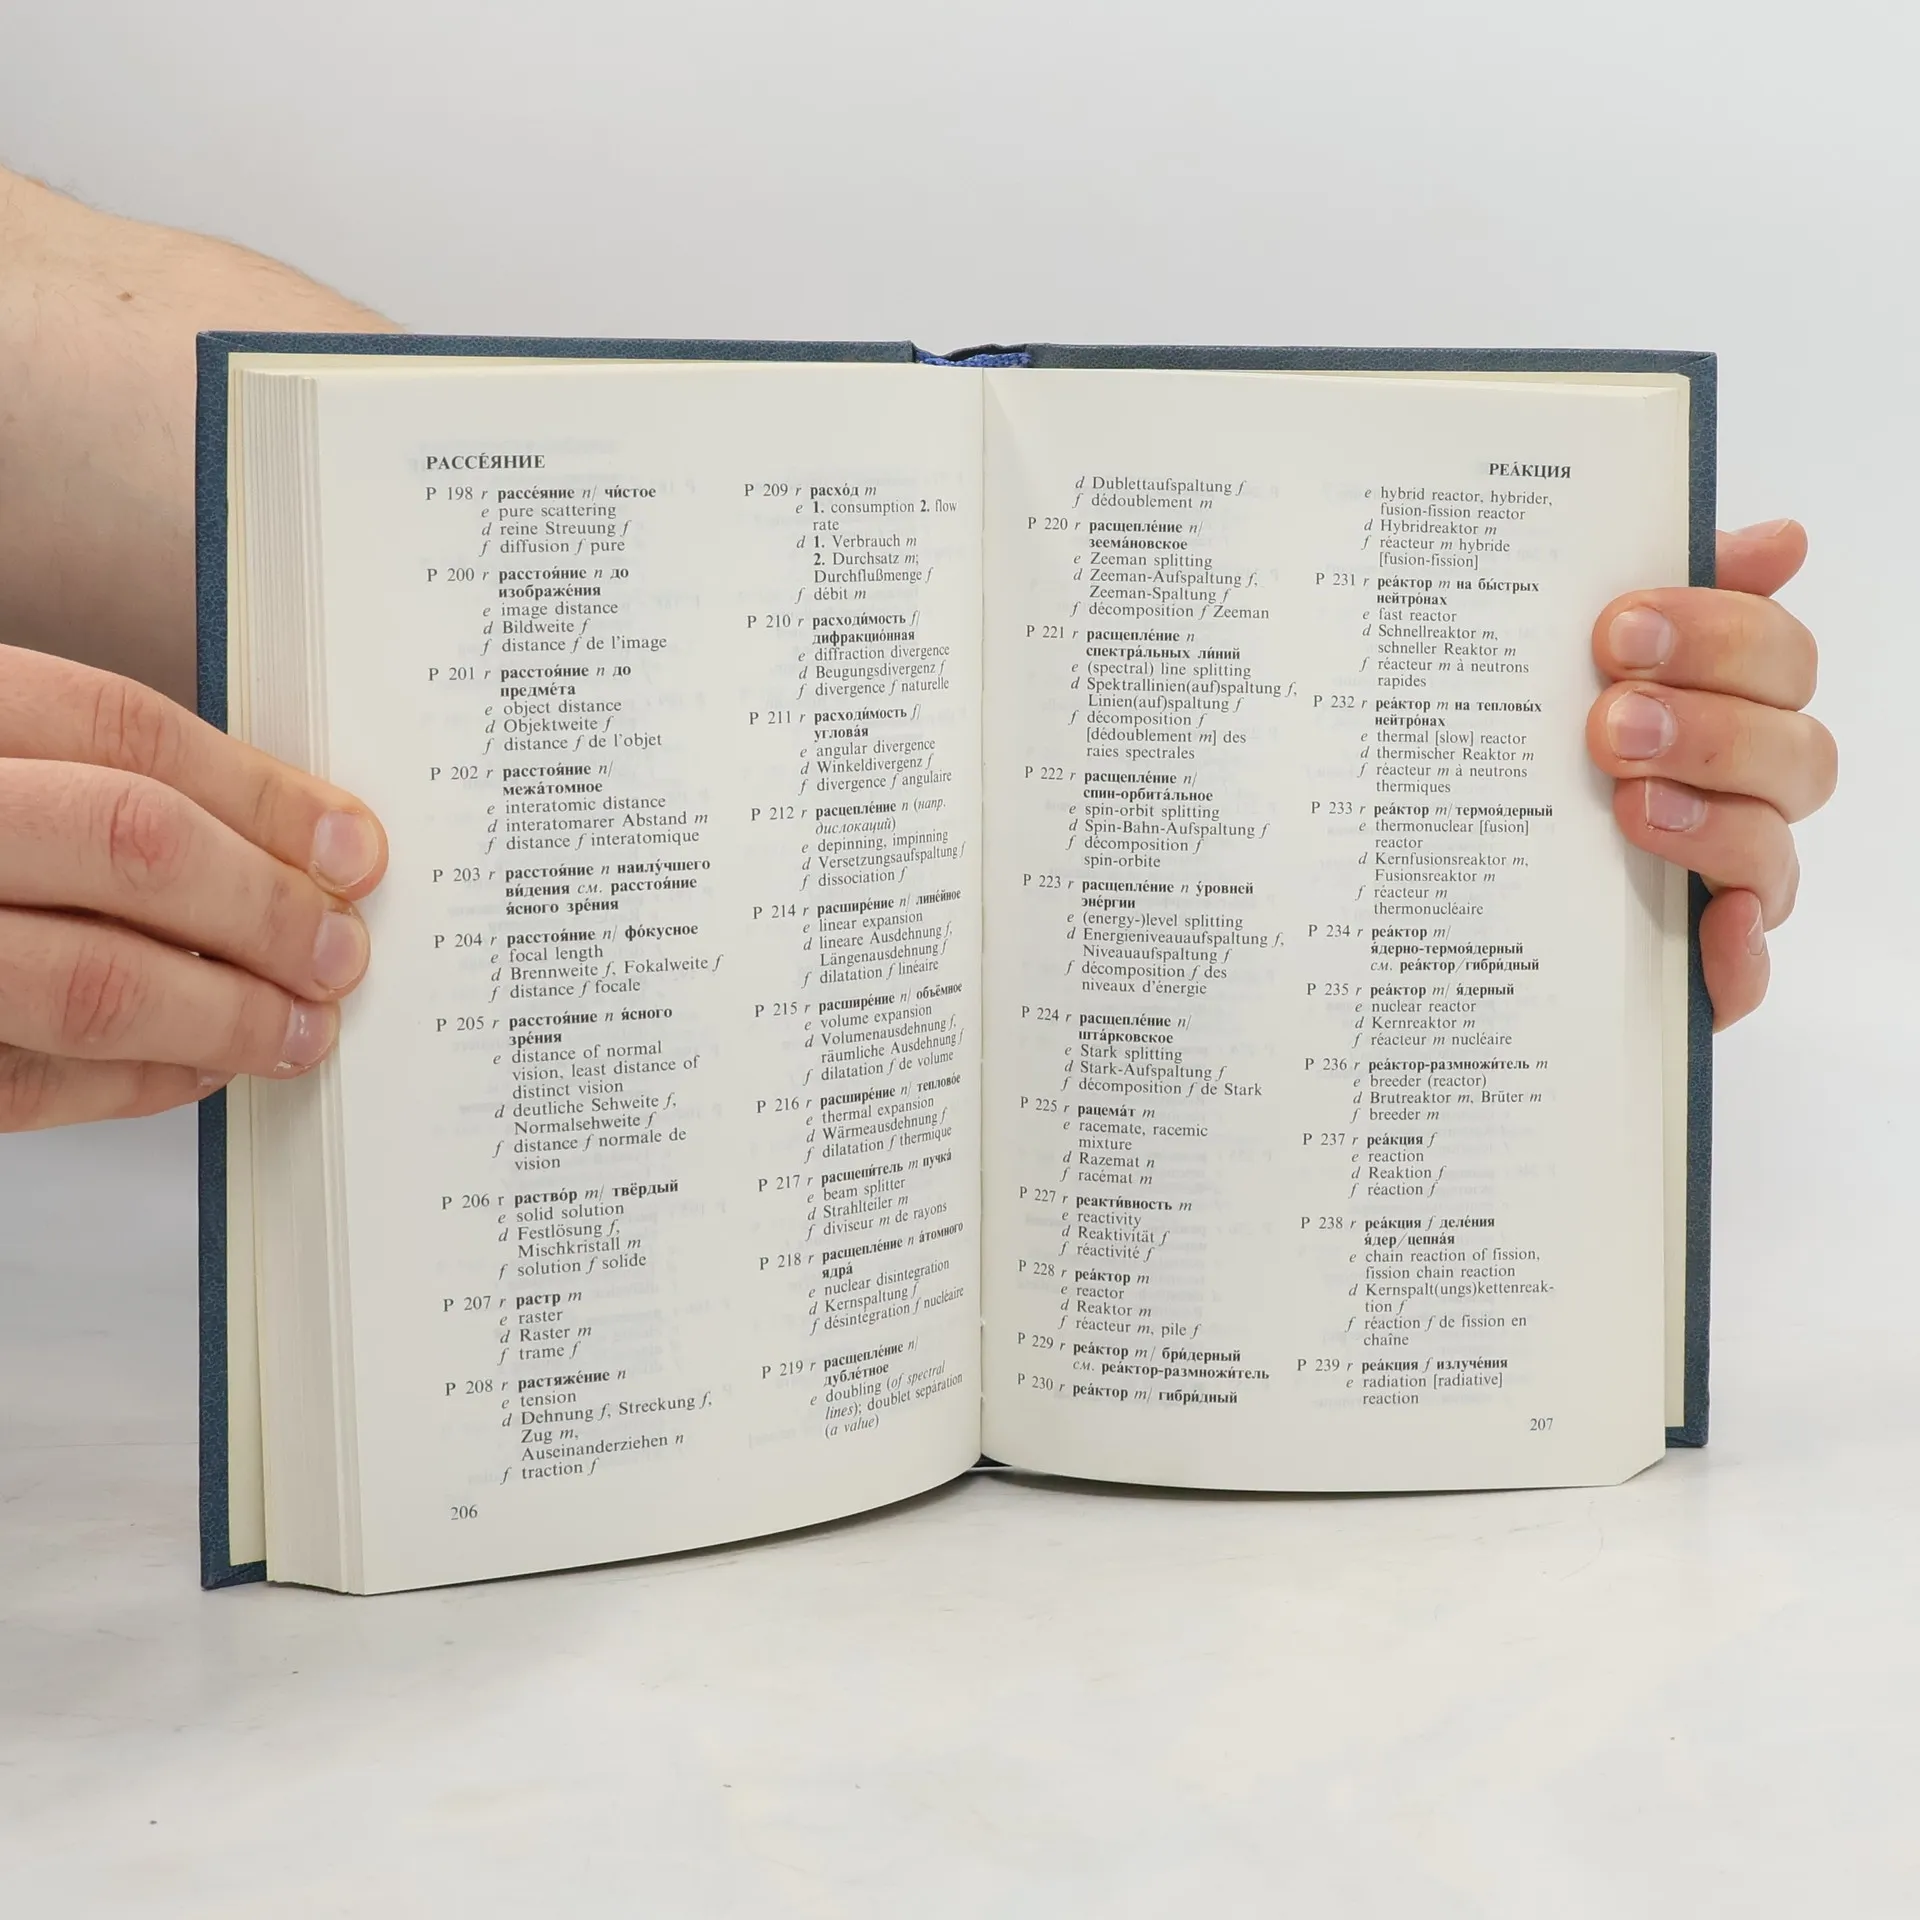 РАССЕ́ЯНИЕ
Р 198 r рассе́яние n/ чи́стое
e pure scattering
d reine Streuung f
f diffusion f pure
Р 200 r расстоя́ние n до
изображе́ния
e image distance
d Bildweite f
f distance f de l'image
Р 201 r расстоя́ние n до
предме́та
e object distance
d Objektweite f
f distance f de l'objet
Р 202 r расстоя́ние n/
межа́томное
e interatomic distance
d interatomarer Abstand m
f distance f interatomique
Р 203 r расстоя́ние n наилу́чшего
ви́дения см. расстоя́ние
я́сного зре́ния
Р 204 r расстоя́ние n/ фо́кусное
e focal length
d Brennweite f, Fokalweite f
f distance f focale
Р 205 r расстоя́ние n я́сного
зре́ния
e distance of normal
vision, least distance of
distinct vision
d deutliche Sehweite f,
Normalsehweite f
f distance f normale de
vision
Р 206 r раство́р m/ твёрдый
e solid solution
d Festlösung f,
Mischkristall m
f solution f solide
Р 207 r растр m
e raster
d Raster m
f trame f
Р 208 r растяже́ние n
e tension
d Dehnung f, Streckung f,
Zug m,
Auseinanderziehen n
f traction f
206
Р 209 r расхо́д m
e 1. consumption 2. flow
rate
d 1. Verbrauch m
2. Durchsatz m;
Durchflußmenge f
f débit m
Р 210 r расходи́мость f/
дифракцио́нная
e diffraction divergence
d Beugungsdivergenz f
f divergence f naturelle
Р 211 r расходи́мость f/
углова́я
e angular divergence
d Winkeldivergenz f
f divergence f angulaire
Р 212 r расцепле́ние n (напр.
дислокаций)
e depinning, impinning
d Versetzungsaufspaltung f
f dissociation f
Р 214 r расшире́ние n/ лине́йное
e linear expansion
d lineare Ausdehnung f,
Längenausdehnung f
f dilatation f linéaire
Р 215 r расшире́ние n/ объёмное
e volume expansion
d Volumenausdehnung f,
räumliche Ausdehnung f
f dilatation f de volume
Р 216 r расшире́ние n/ теплово́е
e thermal expansion
d Wärmeausdehnung f
f dilatation f thermique
Р 217 r расщепи́тель m пучка́
e beam splitter
d Strahlteiler m
f diviseur m de rayons
Р 218 r расщепле́ние n а́томного
ядра́
e nuclear disintegration
d Kernspaltung f
f désintégration f nucléaire
Р 219 r расщепле́ние n/
дубле́тное
e doubling (of spectral
lines); doublet separation
(a value)
РЕА́КЦИЯ
d Dublettaufspaltung f
f dédoublement m
Р 220 r расщепле́ние n/
зеема́новское
e Zeeman splitting
d Zeeman-Aufspaltung f,
Zeeman-Spaltung f
f décomposition f Zeeman
Р 221 r расщепле́ние n
спектра́льных ли́ний
e (spectral) line splitting
d Spektrallinien(auf)spaltung f,
Linien(auf)spaltung f
f décomposition f
[dédoublement m] des
raies spectrales
Р 222 r расщепле́ние n/
спин-орбита́льное
e spin-orbit splitting
d Spin-Bahn-Aufspaltung f
f décomposition f
spin-orbite
Р 223 r расщепле́ние n у́ровней
эне́ргии
e (energy-)level splitting
d Energieniveauaufspaltung f,
Niveauaufspaltung f
f décomposition f des
niveaux d'énergie
Р 224 r расщепле́ние n/
шта́рковское
e Stark splitting
d Stark-Aufspaltung f
f décomposition f de Stark
Р 225 r рацема́т m
e racemate, racemic
mixture
d Razemat n
f racémat m
Р 227 r реакти́вность m
e reactivity
d Reaktivität f
f réactivité f
Р 228 r реа́ктор m
e reactor
d Reaktor m
f réacteur m, pile f
Р 229 r реа́ктор m/ бри́дерный
см. реа́ктор-размножи́тель
Р 230 r реа́ктор m/ гибри́дный
e hybrid reactor, hybrider,
fusion-fission reactor
d Hybridreaktor m
f réacteur m hybride
[fusion-fission]
Р 231 r реа́ктор m на бы́стрых
нейтро́нах
e fast reactor
d Schnellreaktor m,
schneller Reaktor m
f réacteur m à neutrons
rapides
Р 232 r реа́ктор m на тепловы́х
нейтро́нах
e thermal [slow] reactor
d thermischer Reaktor m
f réacteur m à neutrons
thermiques
Р 233 r реа́ктор m/ термоя́дерный
e thermonuclear [fusion]
reactor
d Kernfusionsreaktor m,
Fusionsreaktor m
f réacteur m
thermonucléaire
Р 234 r реа́ктор m/
я́дерно-термоя́дерный
см. реа́ктор/гибри́дный
Р 235 r реа́ктор m/ я́дерный
e nuclear reactor
d Kernreaktor m
f réacteur m nucléaire
Р 236 r реа́ктор-размножи́тель m
e breeder (reactor)
d Brutreaktor m, Brüter m
f breeder m
Р 237 r реа́кция f
e reaction
d Reaktion f
f réaction f
Р 238 r реа́кция f деле́ния
я́дер/цепна́я
e chain reaction of fission,
fission chain reaction
d Kernspalt(ungs)kettenreak-
tion f
f réaction f de fission en
chaîne
Р 239 r реа́кция f излуче́ния
e radiation [radiative]
reaction
207